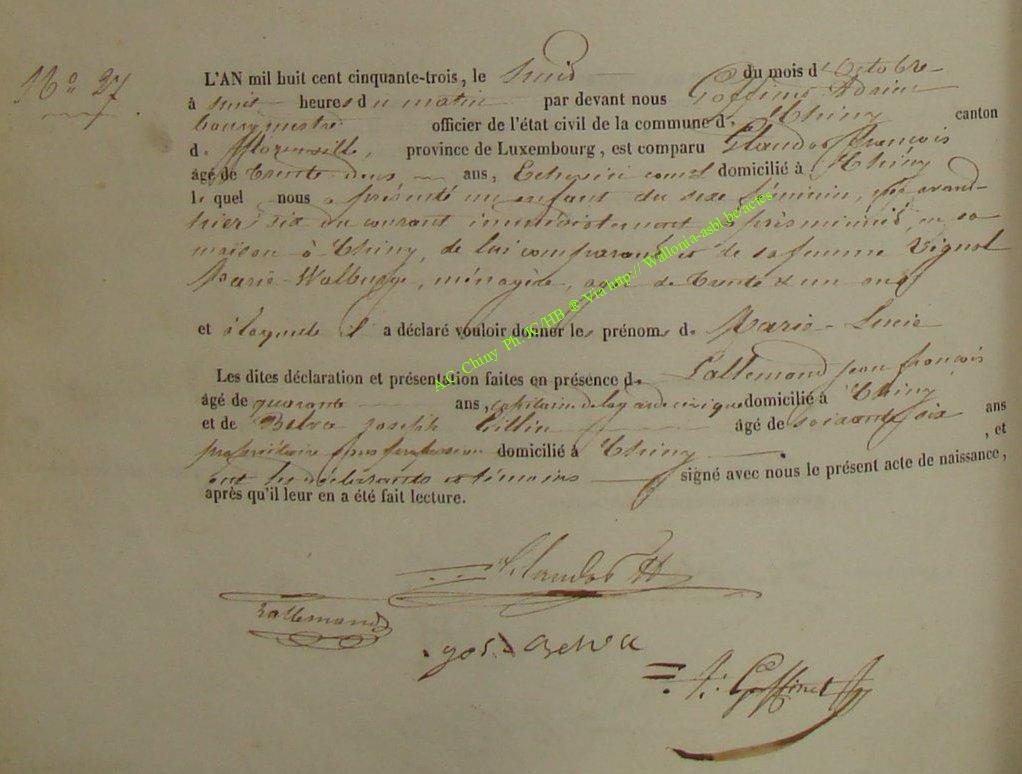 No 27
L'AN mil huit cent cinquante-trois, le huid du mois d'Octobre
à huit heures du matin par devant nous Goffinet Adrien
bourgmestre officier de l'état civil de la commune d. Chiny canton
d. Florenville, province de Luxembourg, est comparu François
âgé de trente deux ans, domicilié à Chiny
le quel nous a présenté un enfant du sexe féminin, né avant-
hier six du courant immédiatement après minuit, en sa
maison à Chiny, de lui comparant et de sa femme Vignol
Marie-Walburge, ménagère, agée de trente & un ans
et à laquelle il a déclaré vouloir donner les prénoms d. Marie-Lucie
Les dites déclaration et présentation faites en présence d. Lallemand jean françois
âgé de quarante ans, capitaine de la garde civique domicilié à Chiny
et de Belva joseph âgé de soixante six ans
propriétaire sans profession domicilié à Chiny , et
ont les déclarants et témoins signé avec nous le présent acte de naissance,
après qu'il leur en a été fait lecture.
Lallemand
jos. Belva
A. Goffinet
A.C. Chiny Ph. JC/HB @ Via http:// Wallonia-asbl.be/actes